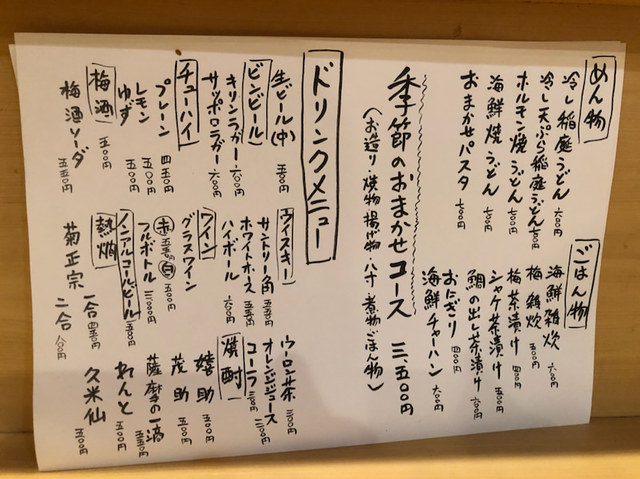 めん物
冷し稲庭うどん 六〇〇円
冷し天ぷら稲庭うどん
ホルモン焼うどん 七〇〇円
海鮮焼うどん 七〇〇円
おまかせパスタ 七〇〇円
ごはん物
海鮮雑炊 六〇〇円
梅雑炊 五〇〇円
梅茶漬け 四〇〇円
シャケ茶漬け 五〇〇円
鯛の出し茶漬け 六〇〇円
おにぎり 四〇〇円
海鮮チャーハン 六〇〇円
季節のおまかせコース 三、五〇〇円
(お造り・焼物・揚げ物・八寸・煮物ごはん物)
ドリンクメニュー
生ビール(中) 五〇〇円
ビンビール
キリンラガー 六〇〇円
サッポロラガー 六〇〇円
チューハイ
プレーン 四五〇円
レモン 五〇〇円
ゆず 五〇〇円
梅酒 五〇〇円
梅酒ソーダ 五五〇円
ウィスキー
サントリー角 五五〇円
ホワイトホース 五五〇円
ハイボール 六〇〇円
ワイン
グラスワイン
赤 五五〇円 白 五〇〇円
フルボトル 三〇〇〇円
ノンアルコールビール 五〇〇円
熱燗
菊正宗 一合 四五〇円
二合 八〇〇円
ウーロン茶 三〇〇円
オレンジジュース 三〇〇円
コーラ 三〇〇円
焼酎
嬉助 五〇〇円
茂助 五〇〇円
薩摩の一滴 五五〇円
れんと 五〇〇円
久米仙 五五〇円